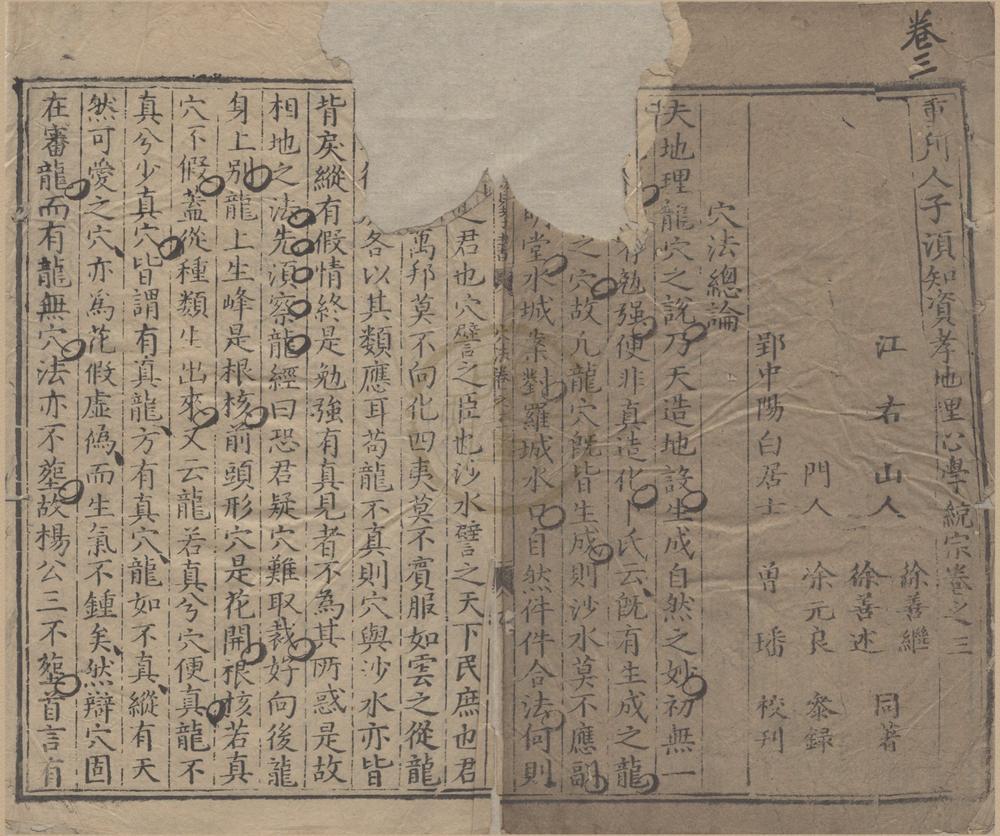 卷三
重刋人子湏知資孝地理心學統宗卷之三
江右山人 徐善繼
徐善述 同著
門人 涂元良 叅錄
鄞中陽白居士 曽璠 校刋
穴法總論
夫地理龍穴之說乃天造地設生成自然之妙初無一
勉强使非真造化卜氏云旣有生成之龍
之穴故凢龍穴旣皆生成則沙水莫不應副
堂水城案對羅城水口自然件件合法何則
穴法卷之
之君也穴譬之臣也沙水譬之天下民庶也君
萬邦莫不向化四夷莫不賔服如雲之從龍
各以其類應耳苟龍不真則穴與沙水亦皆
背戾縱有假情終是勉強有真見者不為其所惑是故
相地之法先湏察龍經曰恐君疑穴難取裁好向後龍
身上别龍上生峰是根核前頭形穴是花開根核若真
穴不假蓋從種類生出來又云龍若真兮穴便真龍不
真兮少真穴皆謂有真龍方有真穴龍如不真縱有天
然可愛之穴亦為花假虛偽而生氣不鍾矣然辯穴固
在審龍而有龍無穴法亦不塟故楊公三不塟首言有